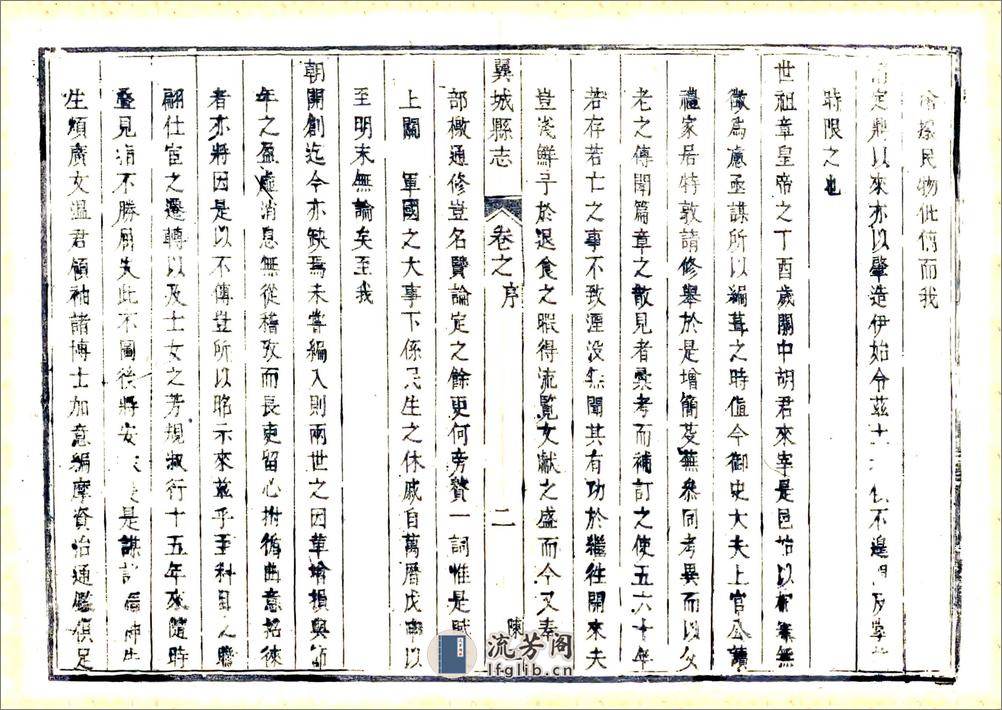 民物
定鼎以來亦以肇造伊始令茲土不遑
時限之也
世祖章皇帝之丁酉歲關中胡君來宰是邑始以無
徵為慮亟謀所以編葺之時值今御史大夫上官公讀
禮家居特敦請修舉於是增簡芟蕪參同考異而以父
老之傳聞篇章之散見者彙考而補訂之使五六十年
若存若亡之事不致湮没無聞其有功於繼往開來夫
豈淺鮮予於退食之暇得流覽文獻之盛而今又奉
翼城縣志 卷之序 二 陳
部檄通修豈名賢論定之餘更何旁贅一詞惟是賦
上關 軍國之大事下係民生之休戚自萬曆戊以
至明末無論矣至我
朝開創迄今亦缺焉未嘗編入則兩世之因革增損與
年之盈虛消息無從稽攷而長吏留心拊循曲意招徠
者亦將因是以不傳豈所以昭示來茲乎至科目之
翩仕宦之遷轉以及士女之芳規淑行十五年來隨時
疊見不勝屈失此不圖後將安是謀
生頻廣文溫君領袖諸博士加意編摩資治通鑑足
流芳阁
lfglib.cn